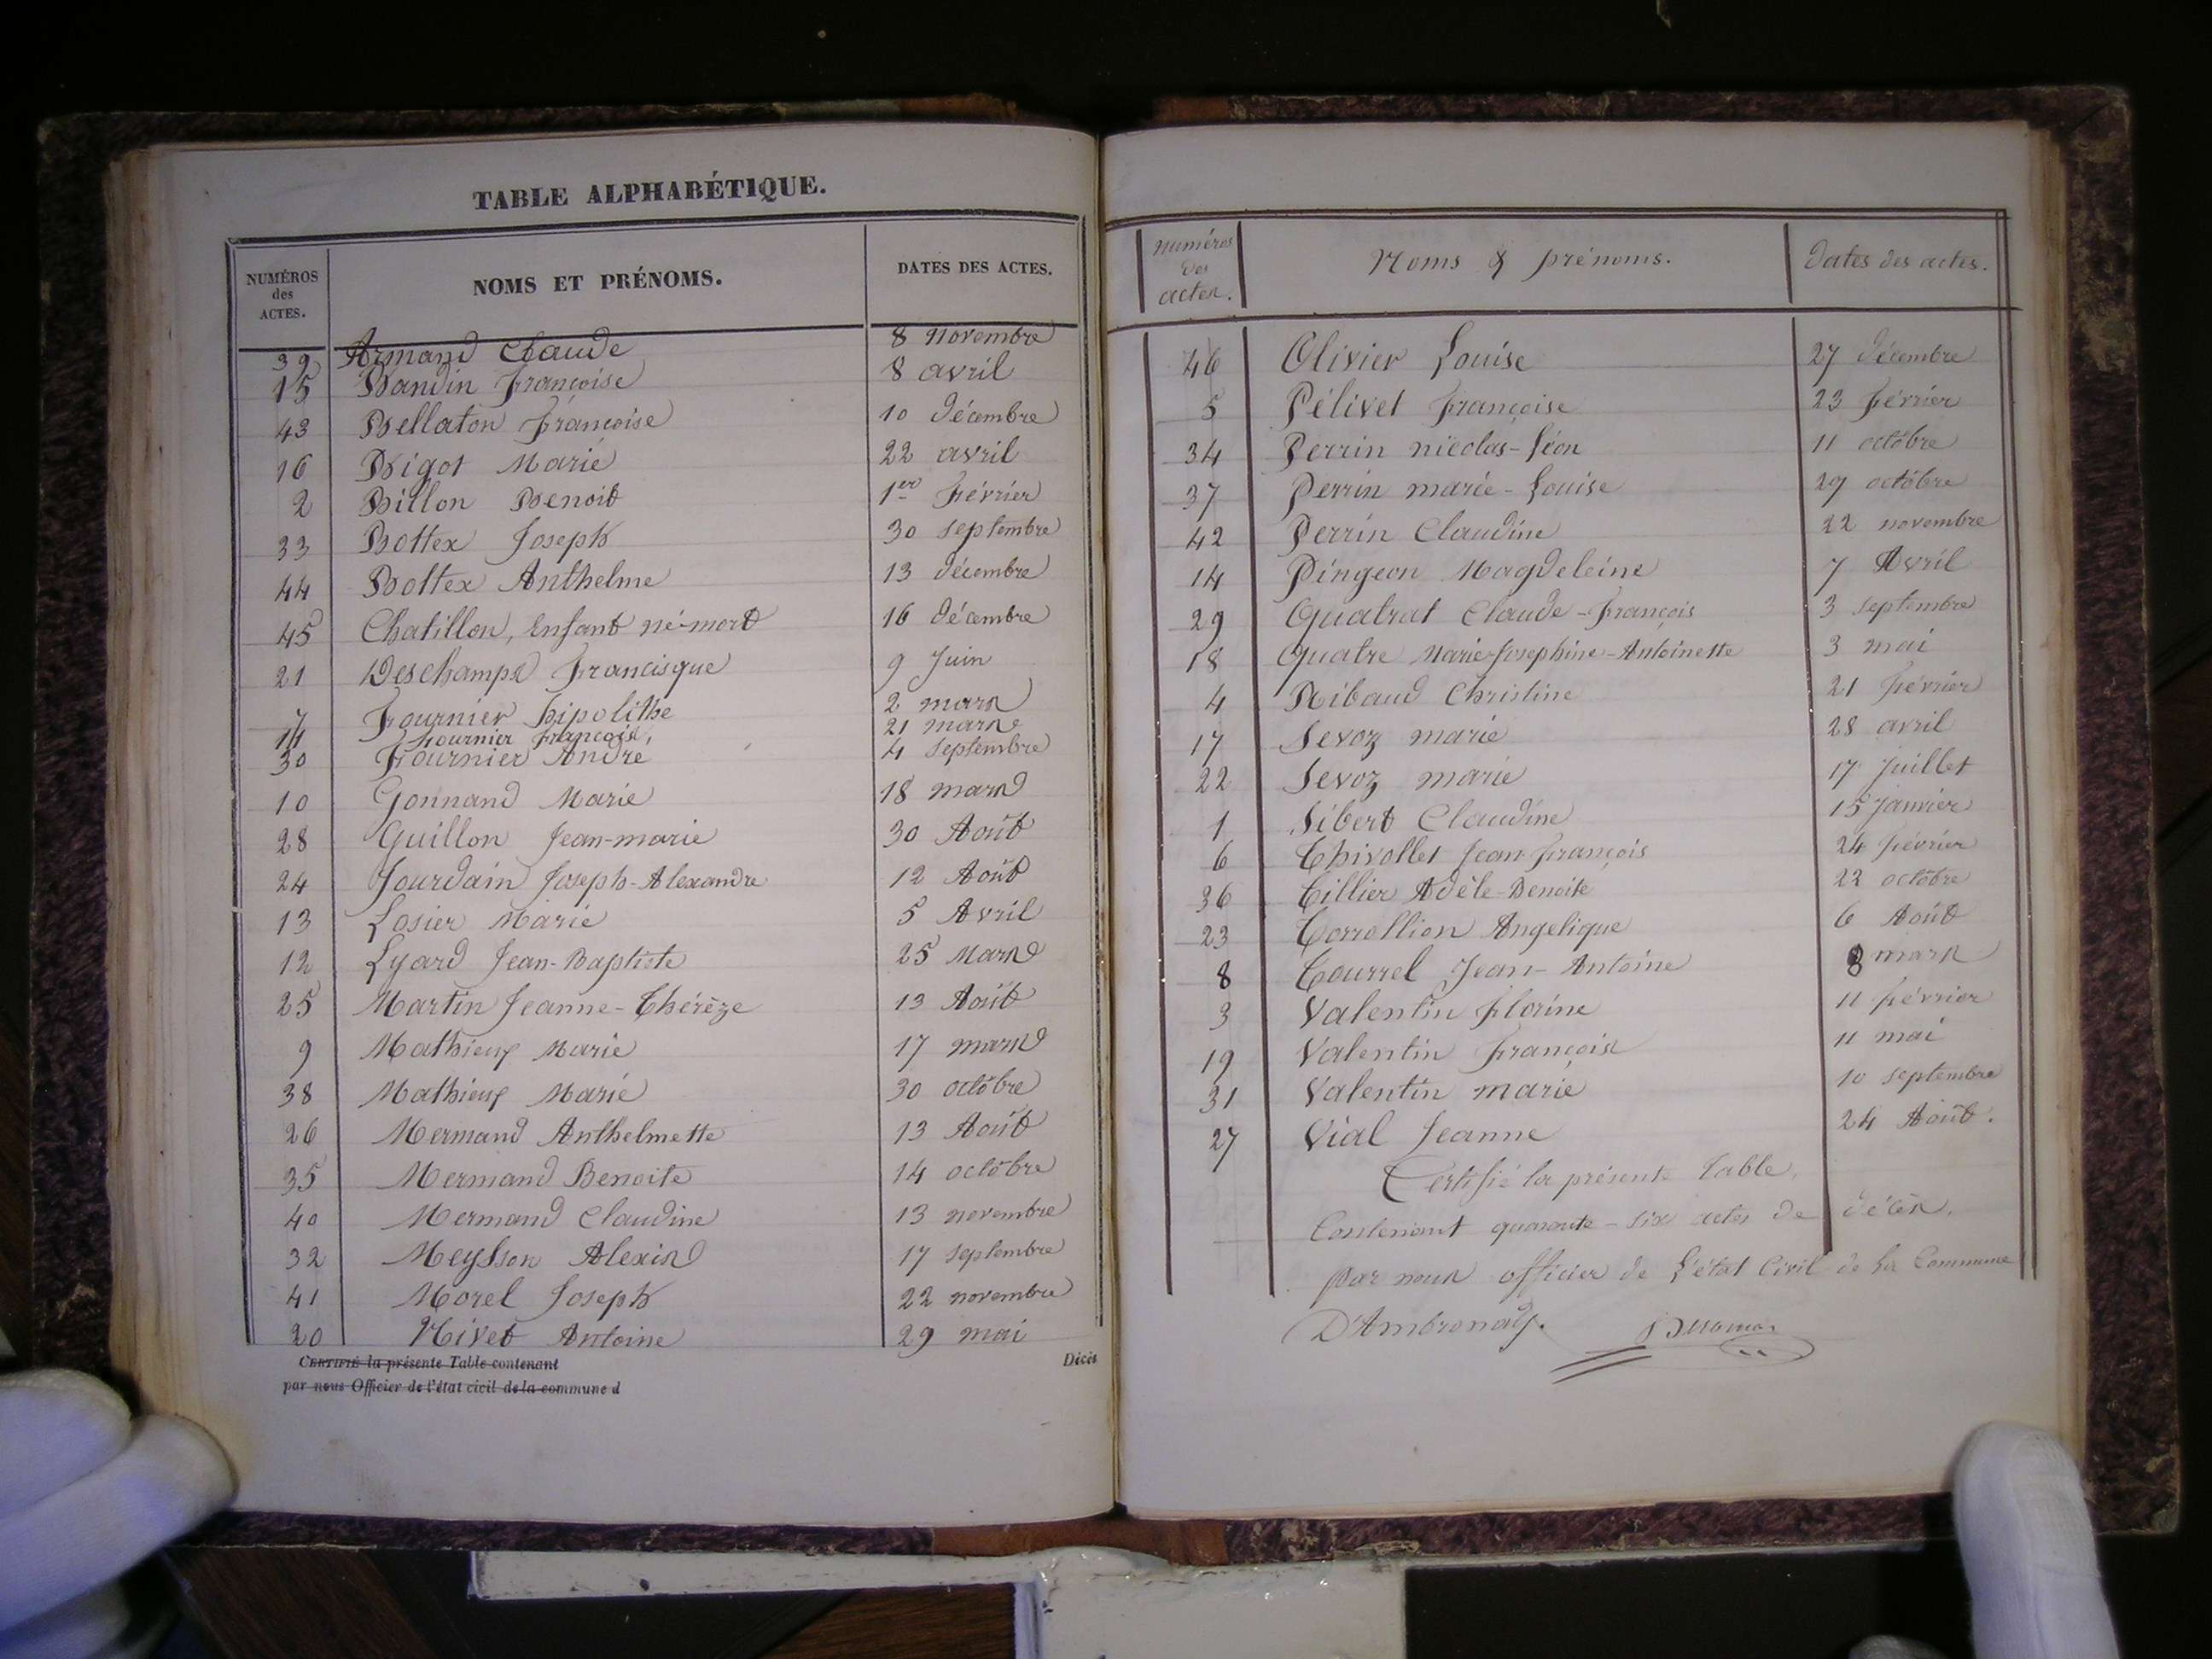 TABLE ALPHABÉTIQUE.
NUMÉROS des ACTES. NOMS ET PRÉNOMS. DATES DES ACTES.
39 Armand Claude 8 Novembre
15 Bandin Françoise 8 avril
43 Bellaton Françoise 10 décembre
16 Bigot Marie 22 avril
2 Billon Benoit 1er Février
33 Bottex Joseph 30 septembre
44 Bottex Anthelme 13 décembre
45 Chatillon, Enfant né-mort 16 décembre
21 Deschamps Francisque 9 Juin
7 Fournier hipolithe 2 mars
11 Fournier François, 21 mars
30 Fournier André 4 septembre
10 Gonnand Marie 18 mars
28 Guillon Jean-marie 30 Août
24 Jourdain Joseph-Alexandre 12 Août
13 Losier Marie 5 Avril
12 Lyard Jean-Baptiste 25 Mars
25 Martin Jeanne-Thérèze 13 Août
9 Mathieux Marie 17 mars
38 Mathieux Marie 30 octobre
26 Mermand Anthelmette 13 Août
35 Mermand Benoite 14 octobre
40 Mermand Claudine 13 novembre
32 Meysson Alexis 17 septembre
41 Morel Joseph 22 novembre
20 Nivet Antoine 29 mai
CERTIFIÉ la présente Table contenant
par nous Officier de l'état civil de la commune d
Décès
numéros des actes. Noms & prénoms. Dates des actes.
46 Olivier Louise 27 décembre
5 Pélivet Françoise 23 Février
34 Perrin nicolas-Léon 11 octobre
37 Perrin marie-Louise 29 octobre
42 Perrin Claudine 22 novembre
14 Pingeon Magdeleine 7 Avril
29 Quatrat Claude-François 3 septembre
18 Quatre Marie-Josephine-Antoinette 3 mai
4 Ribaud Christine 21 Février
17 Sevoz marie 28 avril
22 Sevoz marie 17 Juillet
1 Sibert Claudine 15 Janvier
6 Thivollet Jean-François 24 Février
36 Tillier Adèle-Benoite 22 octobre
23 Torrollion Angelique 6 Août
8 Tourrel Jean-Antoine 8 mars
3 Valentin Florine 11 Février
19 Valentin François 11 mai
31 Valentin marie 10 septembre
27 Vial Jeanne 24 Août.
Certifié la présente Table,
Contenant quarante-six actes de décès,
par nous officier de L'état Civil de La Commune
D'Ambronay.